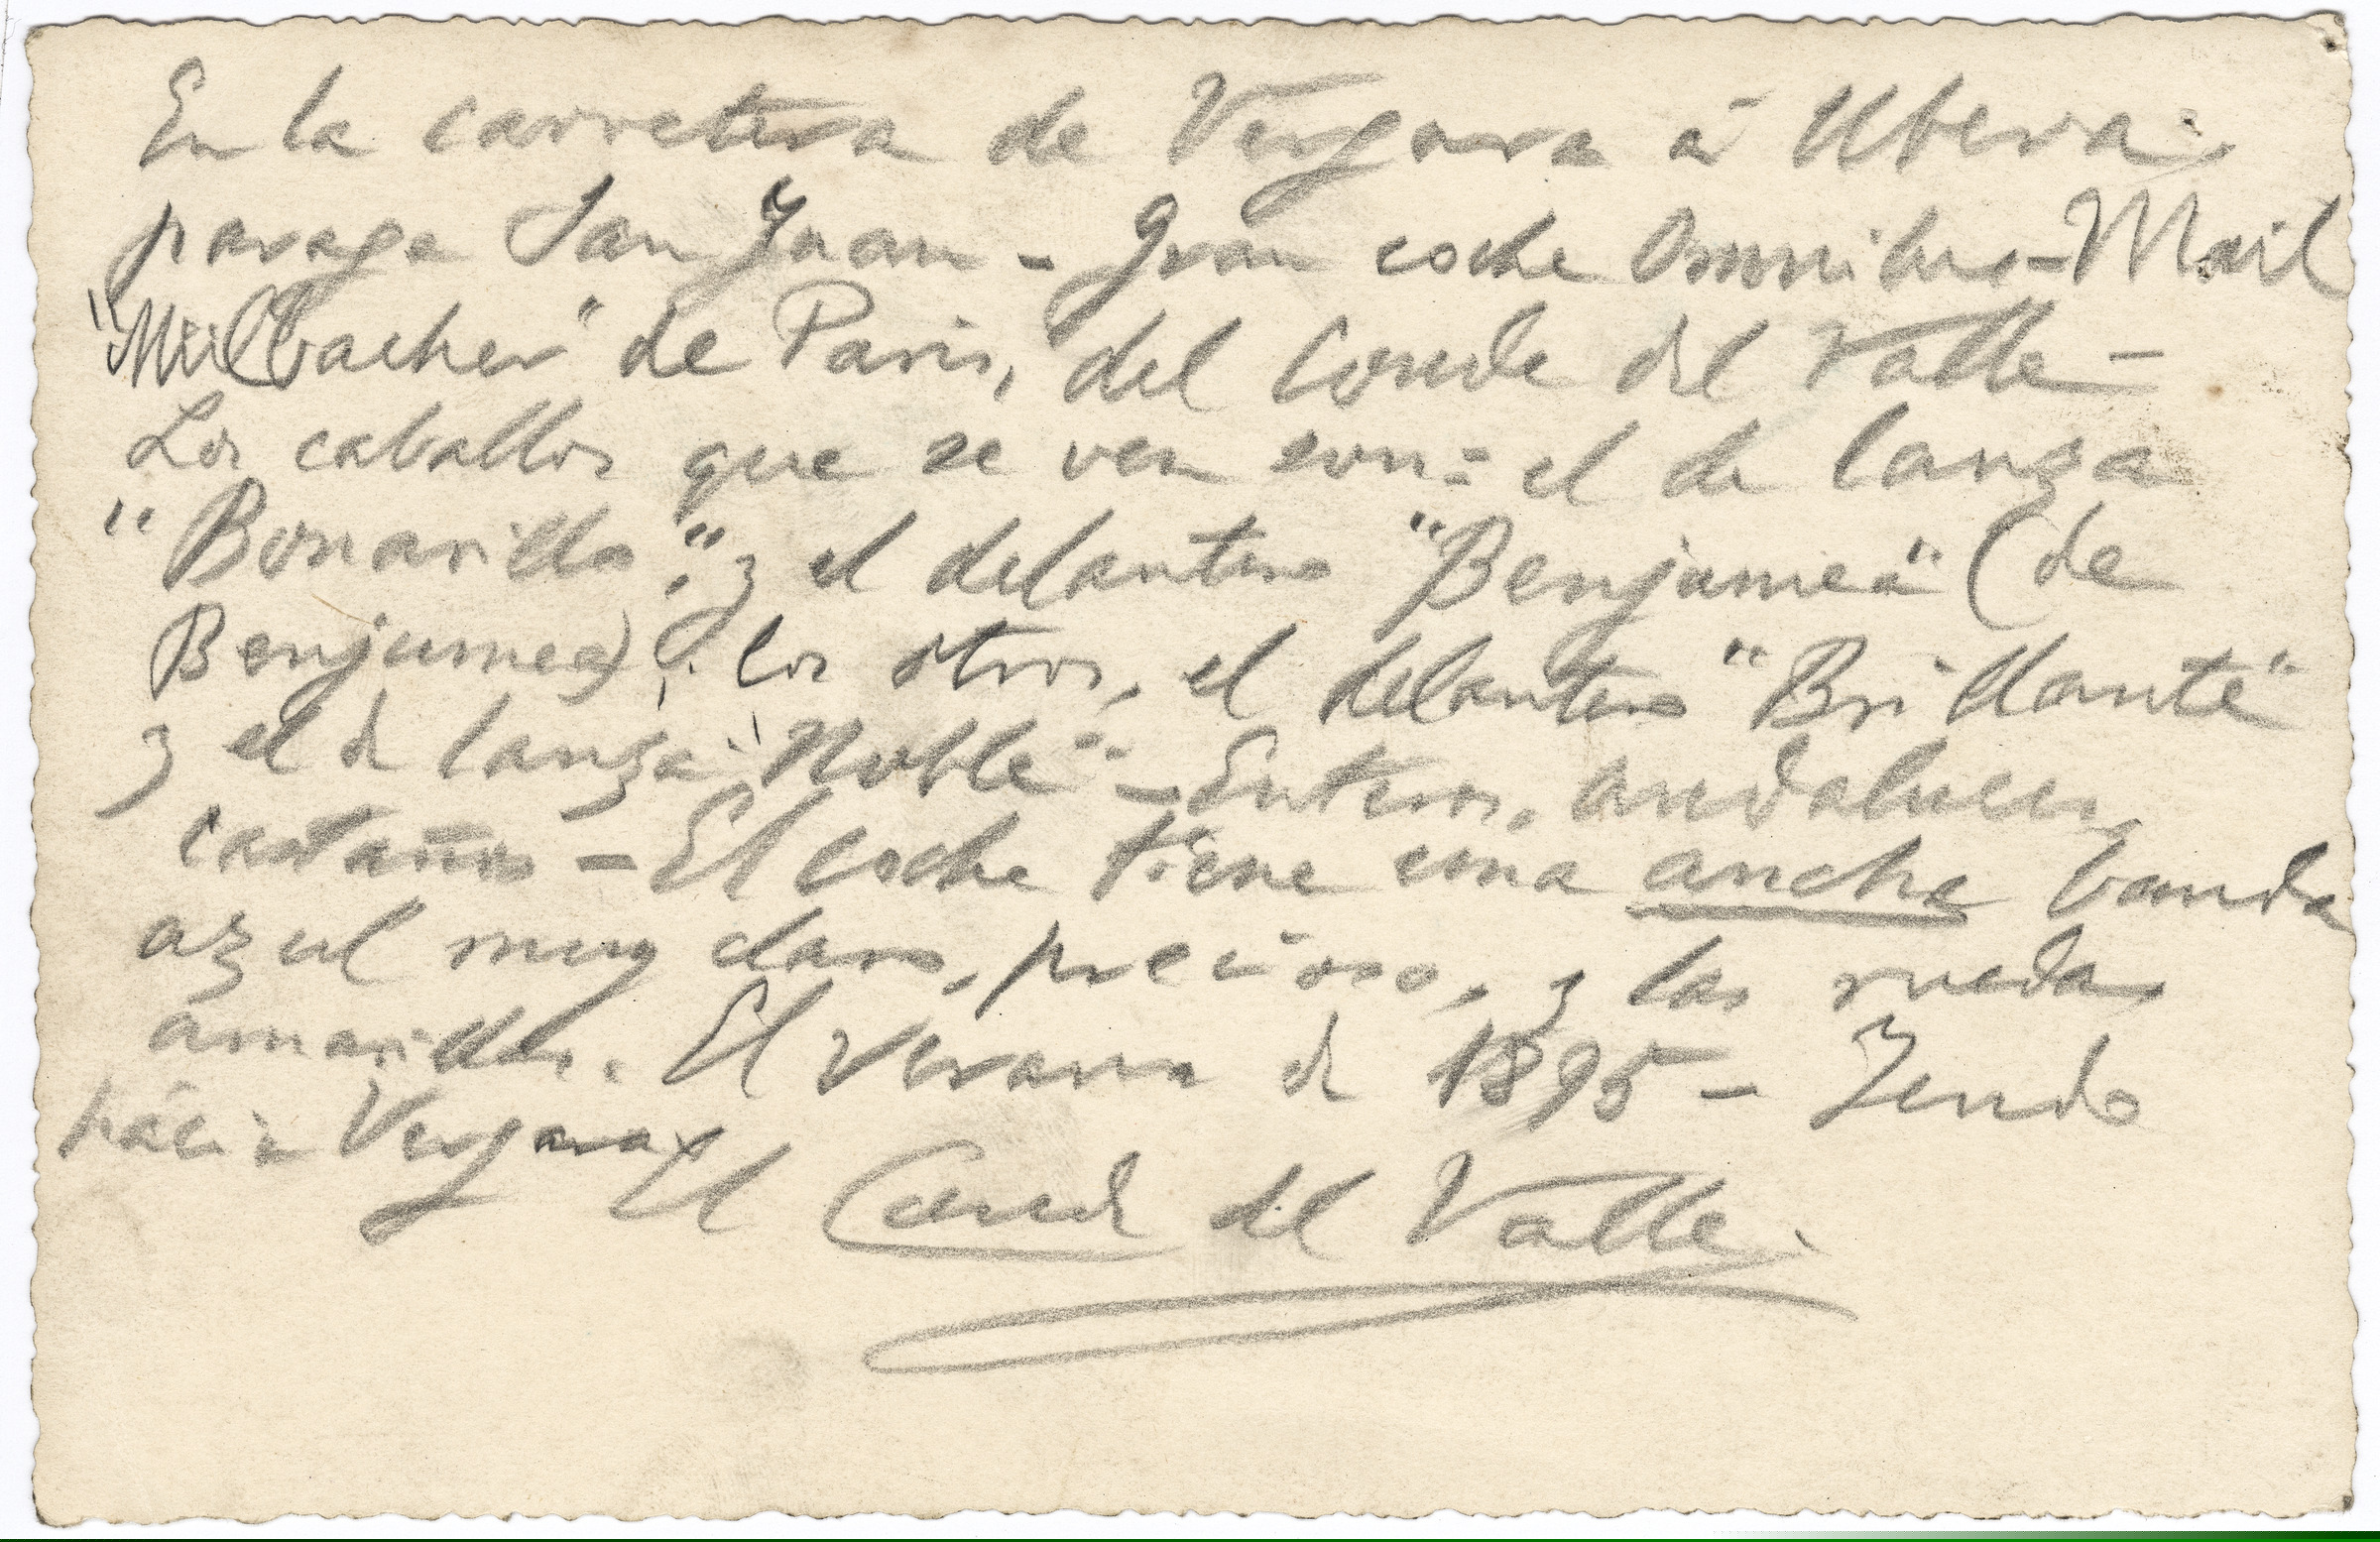 En la carretera de Vergara á Ubera.
parage San Juan - Gran coche Omnibus-Mail
"Mülbacher" de Paris, del Conde del Valle -
Los caballos que se ven son: el de lanza
"Bonarillo," y el delantero "Benjumea" (de
Benjumea); los otros, el delantero "Brillante"
y el d lanza "Noble" - Enteros, andaluces,
castaños - El coche tiene una ancha banda
azul muy claro, precioso, y las ruedas
amarillas. El verano de 1895 - Yendo
hácia Vergara
El Conde del Valle.